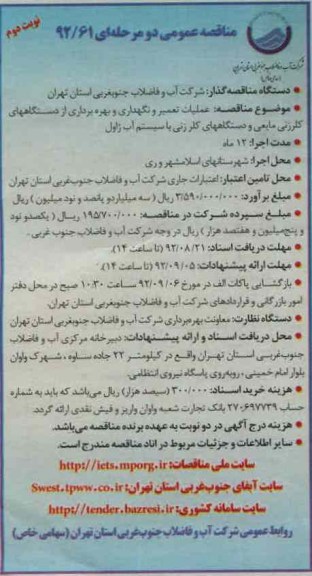 نوبت دوم
مناقصه عمومی دو مرحله‌ای ۹۲/۶۱
شرکت آب و فاضلاب جنوب غربی استان تهران
(سهامی خاص)
• دستگاه مناقصه‌گذار: شرکت آب و فاضلاب جنوبغربی استان تهران
• موضوع مناقصه: عملیات تعمیر و نگهداری و بهره برداری از دستگاههای
کلرزنی مایعی و دستگاههای کلر زنی با سیستم آب ژاول
• مدت اجرا: ۱۲ ماه
• محل اجرا: شهرستانهای اسلامشهر و ری
• محل تامین اعتبار: اعتبارات جاری شرکت آب و فاضلاب جنوب‌غربی استان تهران
• مبلغ برآورد: ۳/۵۹۰/۰۰۰/۰۰۰ ریال ( سه میلیارد و پانصد و نود میلیون ) ریال
• مبلغ سپرده شرکت در مناقصه: ۱۹۵/۷۰۰/۰۰۰ ریال ( یکصدو نود
و پنج‌میلیون و هفتصد هزار ) ریال در وجه شرکت آب و فاضلاب جنوب غربی .
• مهلت دریافت اسناد: ۹۲/۰۸/۲۱ (تا ساعت ۱۴).
• مهلت ارائه پیشنهادات: ۹۲/۰۹/۰۵ (تا ساعت ۱۴).
• بازگشایی پاکات الف در مورخ ۹۲/۰۹/۰۶ ساعت ۱۰:۳۰ صبح در محل دفتر
امور بازرگانی و قراردادهای شرکت آب و فاضلاب جنوبغربی استان تهران.
• دستگاه نظارت: معاونت بهره‌برداری شرکت آب و فاضلاب جنوبغربی استان تهران
• محل دریافت اسناد و ارائه پیشنهادات: دبیرخانه مرکزی آب و فاضلاب
جنوب‌غربی استان تهران واقع در کیلومتر ۲۲ جاده ساوه ، شهرک واوان
بلوار امام خمینی ، روبه‌روی پاسگاه نیروی انتظامی.
• هزینه خرید اسناد: ۳۰۰/۰۰۰ (سیصد هزار) ریال می‌باشد که باید به شماره
حساب ۲۷۰۶۹۷۷۳۹ بانک تجارت شعبه واوان واریز و فیش نقدی ارائه گردد.
• هزینه درج آگهی در دو نوبت به عهده برنده مناقصه می‌باشد.
• سایر اطلاعات و جزئیات مربوط در اسناد مناقصه مندرج است.
سایت ملی مناقصات: http://iets.mporg.ir
سایت آبفای جنوب‌غربی استان تهران: Swest.tpww.co.ir
سایت سامانه کشوری: http://tender.bazresi.ir
روابط عمومی شرکت آب و فاضلاب جنوب غربی استان تهران (سهامی خاص)